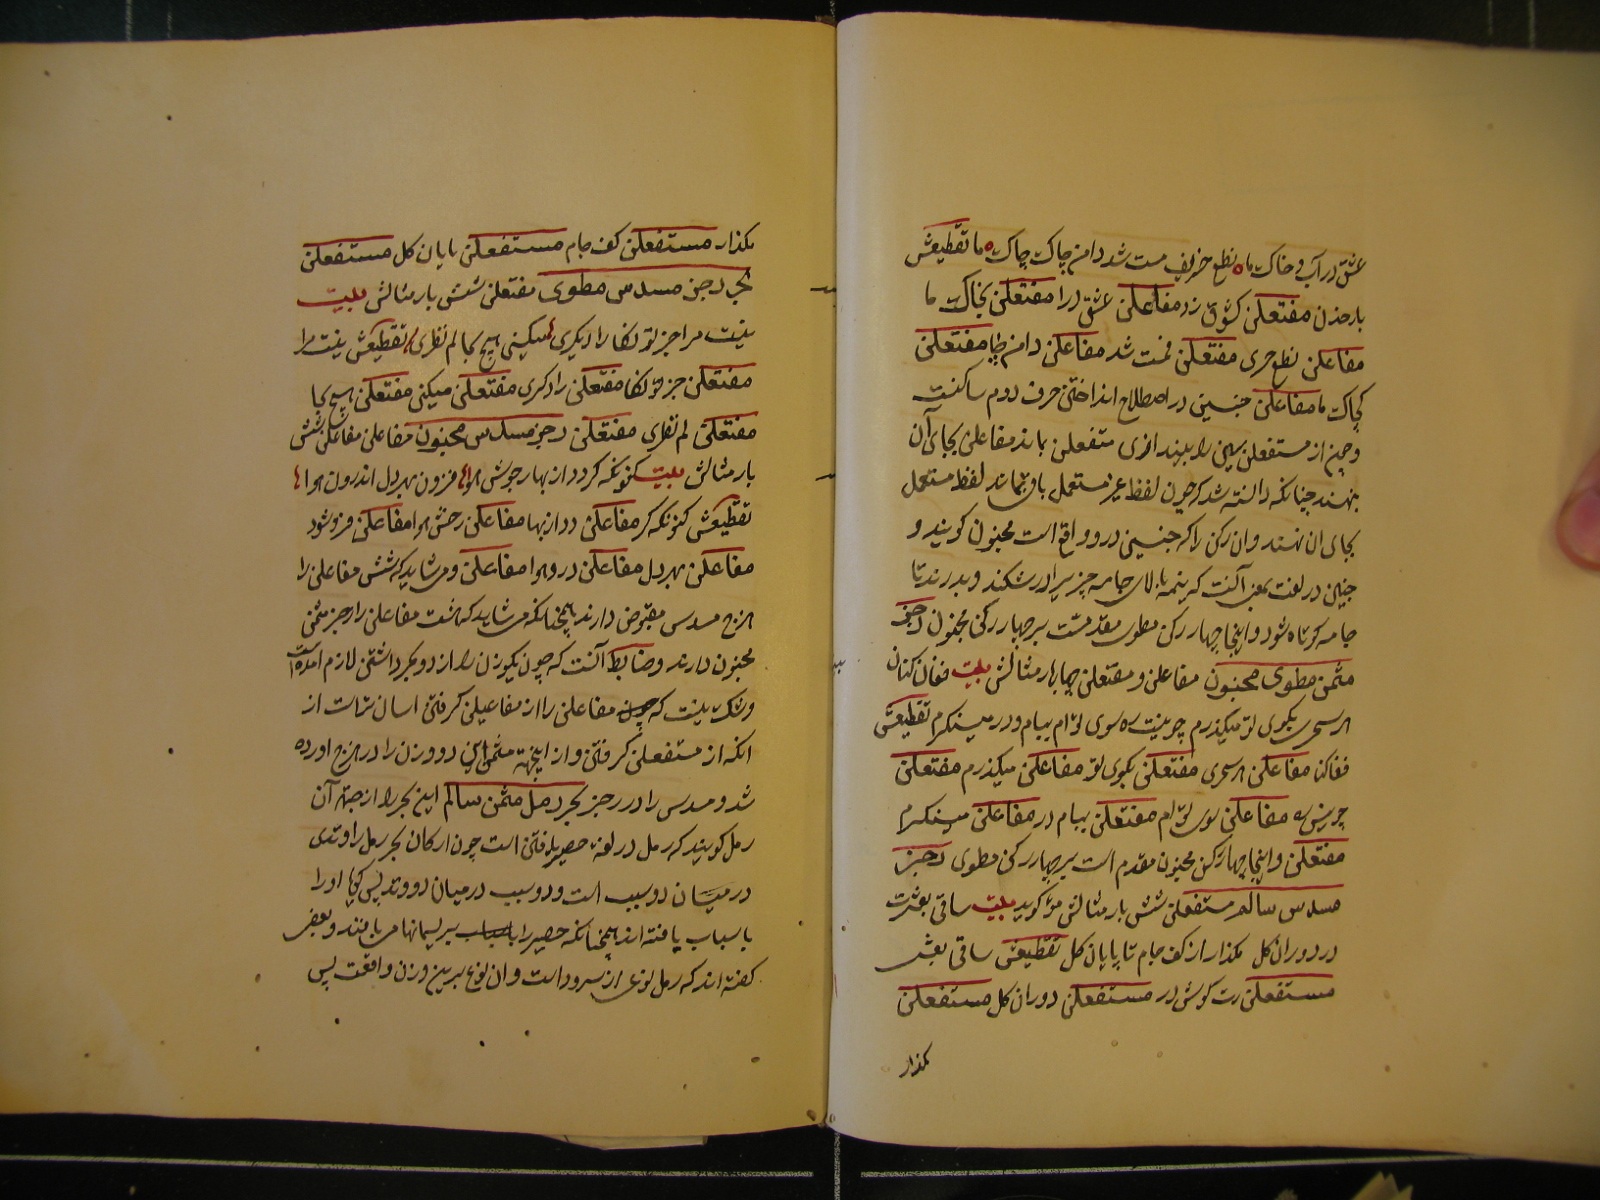 عشق در آب و خاک ما نطع حریف مست شد دامن چاک چاک ما تقطیعش
بار حذن مفتعلن کشوق زد مفاعلن عشق درا مفتعلن بخاک ما
مفاعلن نطع حری مفتعلن فمست شد مفاعلن دامن چا مفتعلن
کچاک ما مفاعلن خبنین در اصطلاح انداختن حرف دوم ساکنست
و چون از مستفعلن سین را بیندازی متفعلن بماند مفاعلن بجای آن
بنهند چنانکه دانسته شد که چون لفظ غیر مستعمل باقی بماند لفظ مستعمل
بجای ان نهند و ان رکن را که خبنین درو واقع است مخبون کویند و
خبن در لغت بمعنی آنست که بالای جامه چیزیرا درشکنند و بدوزند تا
جامه کوتاه شود و اینجا چهار رکن مطوی مقدمست بر چهار رکن مخبون رجز
مثمن مطوی مخبون مفاعلن و مفتعلن چهار بار مثالش بیت فغان کنان
هر سحری بکوی تو میکذرم چو نیست ره سوی توام ببام و در مینکرم تقطیعش
فغا کنا مفاعلن هر سحری مفتعلن بکوی تو مفاعلن میکذرم مفتعلن
چو نیس ره مفاعلن سوی توام مفتعلن ببام در مفاعلن مینکرم
مفتعلن و اینجا چهار رکن مخبون مقدم است بر چهار رکن مطوی رجز
مسدس سالم مستفعلن شش بار مثالش مؤ کوید بیت ساقی بعشرت
در دوران کل مکذار از کف جام تا پایان کل تقطیعش ساقی بعش
مستفعلن رت کوش در مستفعلن دوران کل مستفعلن
مکذار
مکذار مستفعلن کف جام مستفعلن تا پایان کل مستفعلن
بحر رجز مسدس مطوی مفتعلن شش بار مثالش بیت
نیست مرا جز تو نکارا دیکری میکنی هیچ بحالم نظری تقطیعش نیست مرا
مفتعلن جز تو نکا مفتعلن را دکری مفتعلن میکنی مفتعلن هیچ بحا
مفتعلن لم نظری مفتعلن رجز مسدس مخبون مفاعلن مفاعلن شش
بار مثالش بیت کنونکه کردد از بهار جوش هوا فزون بهر دل اندرون هوا
تقطیعش کنونکه کر مفاعلن دد از بها مفاعلن رخش هوا مفاعلن فزو شود
مفاعلن بهر دل مفاعلن درو هوا مفاعلن و می شاید که شش مفاعلن را
هزج مسدس مقبوض دارند همچنانکه می شاید که هشت مفاعلن را رجز مثمن
مخبون دارند و ضابطه آنست که چون یکوزن را از دو بحر داشتن لازم امده است
و شک نیست که مفاعلن را از مفاعیلن کرفتن اسان تر است از
انکه از مستفعلن کرفتن و از اینجهة مثمن این دو وزن را در هزج اورده
شد و مسدس را در رجز بحر رمل مثمن سالم این بحر را از جهة آن
رمل کویند که رمل در لغة حصیر بافتن است چون ارکان بحر رمل را وتدی
در میان دو سبب است و دو سبب در میان دو وتد پس کویا او را
باسباب بافته اند همچنانکه حصیر را بریسمانها می بافند و بعض
کفته اند که رمل نوعی از سرود است و ان نوع برین وزن واقعست پس